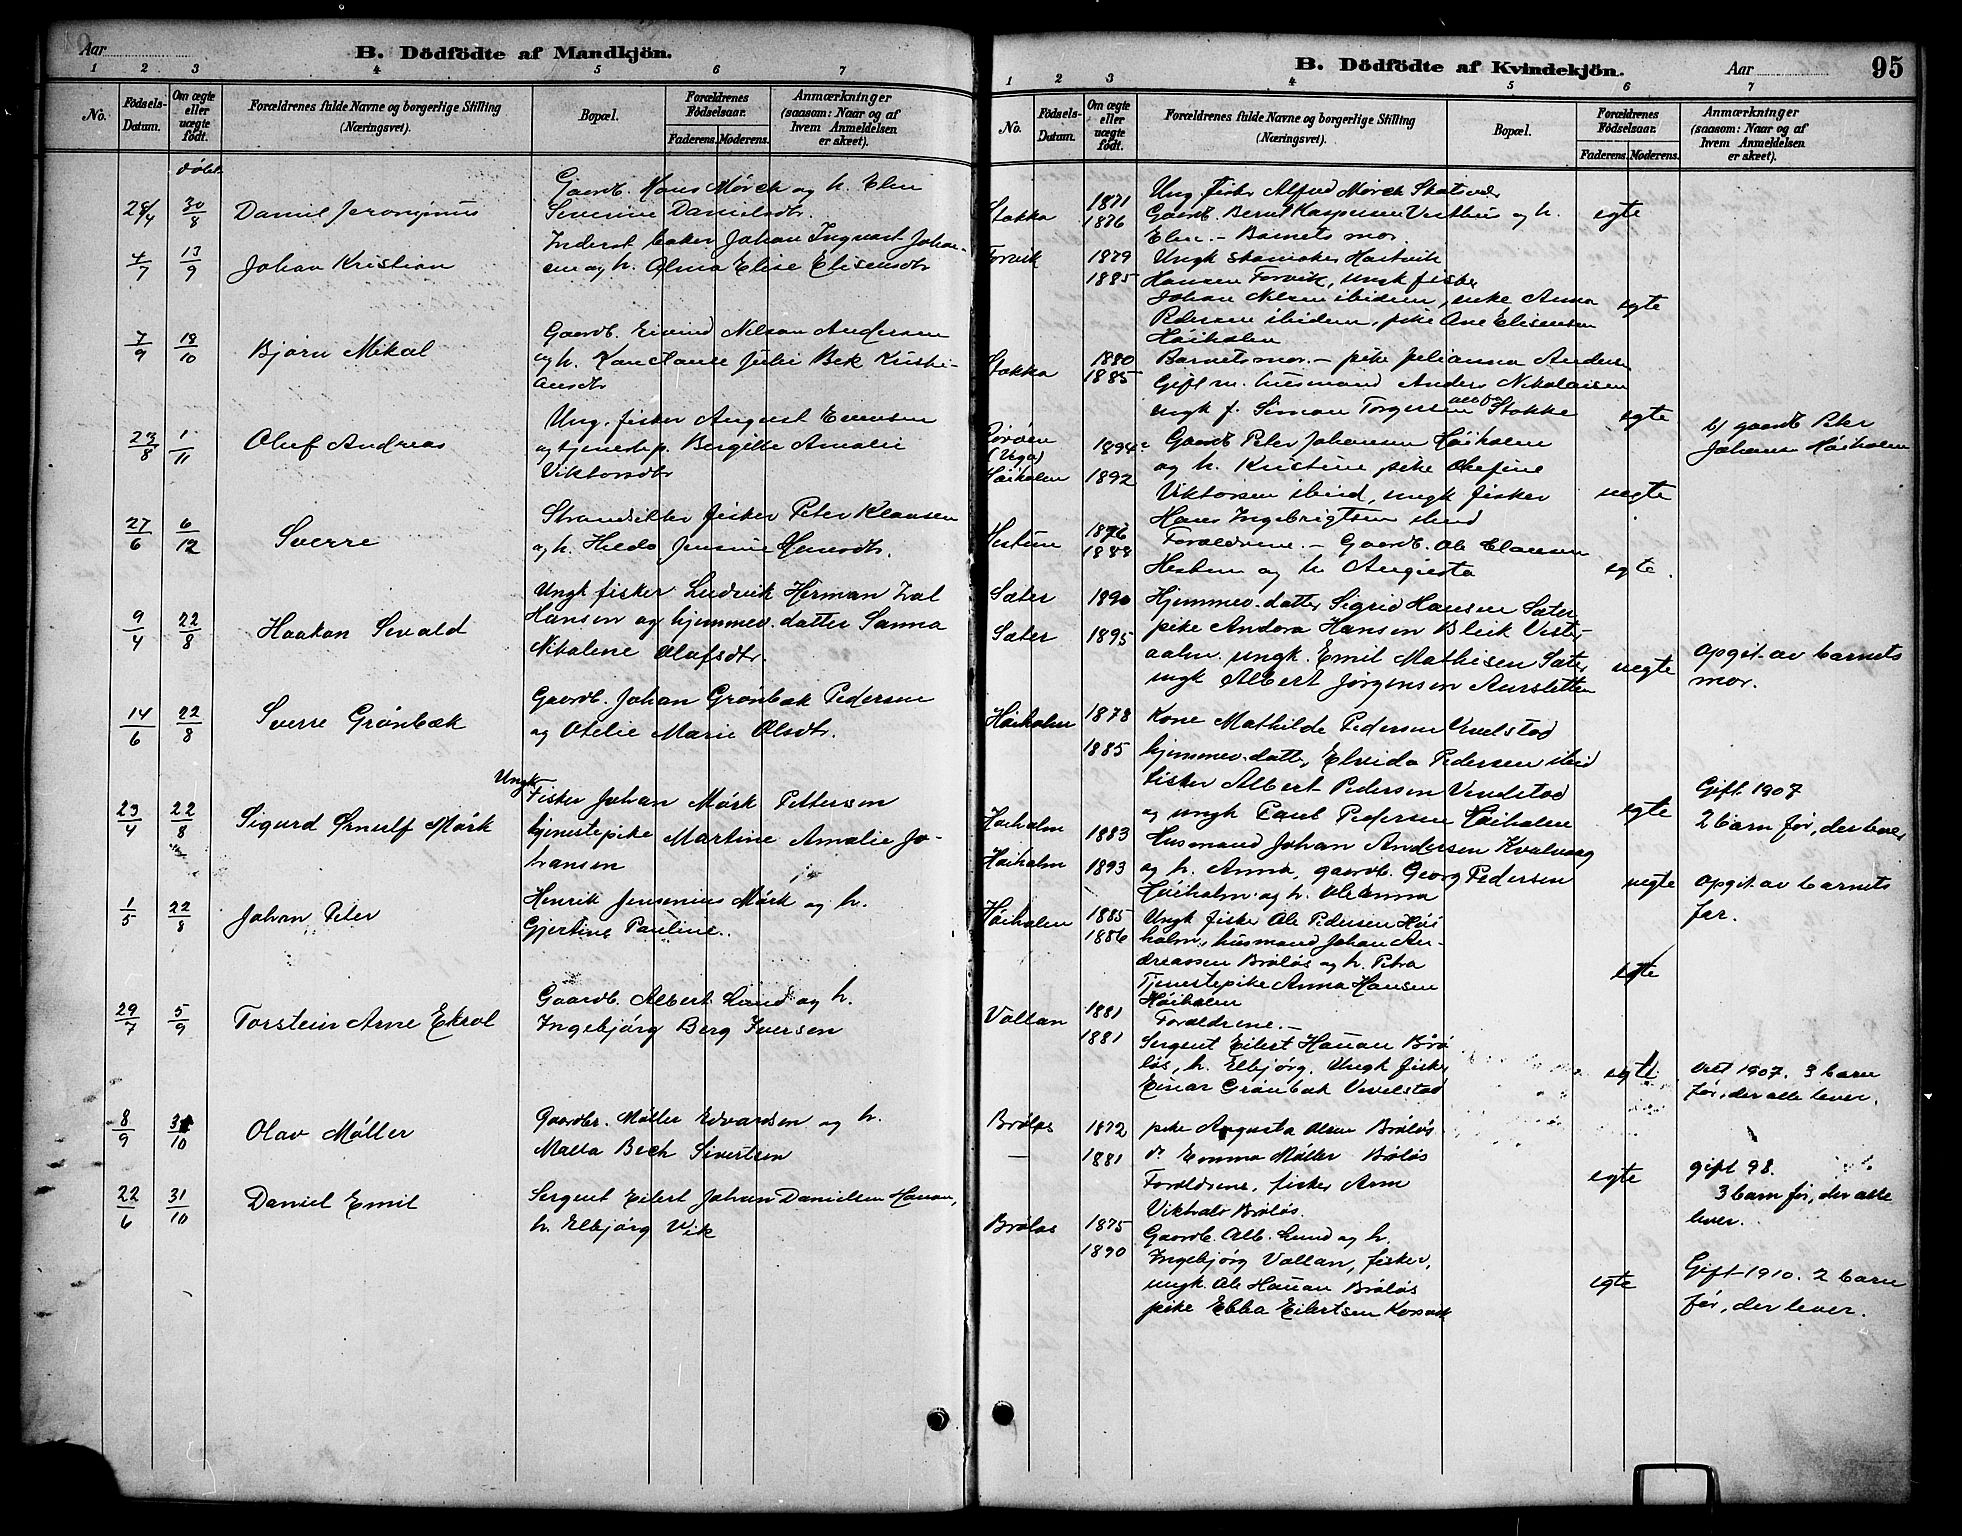 Aar
B. Dödfödte af Mandkjön.
1 2 3 4 5 6 7
No.
Födsels-Datum.
Om ægte eller uægte født.
Forældrenes fulde Navne og borgerlige Stilling (Næringsvei).
Bopæl.
Forældrenes Födselsaar.
Faderens. Moderens.
Anmærkninger (saasom: Naar og af hvem Anmeldelsen er skeet).
døbt
28/4 30/8 Daniel Jeronymus
Gaardb. Hans Mørck og h. Elen
Severine Danielsdtr.
4/7 13/9 Johan Kristian
Inderst baker Johan Ingvart Johan-
sen og h. Alma Elise Elisensdtr
7/9 18/10 Bjørn Mikal
Gaardb. Eivind Nilson Andersen
og h. Hanselanse Julie Bek Kristi-
ansdtr
23/8 1/11 Oluf Andreas
Ung. fisker August Evensen
og tjenestep. Bergitte Amalie
Viktorsdtr
27/6 6/12 Sverre
Strandsitter fisker Peter Klausen
og h. Hilda Jensine Hansdtr.
9/4 22/8 Haakon Sevald
Ungk fisker Ludvik Herman Zal
Hansen og hjemmev. datter Sanna
Nikoline Olafsdtr.
14/6 22/8 Sverre Grönbæk
Gaardb. Johan Grönbæk Pedersen
og Otelie Marie Olsdtr.
23/4 22/8 Sigurd Ørnulf Mørk
Ungk. Fisker Johan Mørk Pettersen
tjenestepike Martine Amalie Jo-
hansen
1/5 22/8 Johan Peter
Henrik Jensenius Mørk og h.
Gjertine Pauline.
29/7 5/9 Torstein Arne Ekrol
Gaardb. Albert Lund og h.
Ingebjørg Berg Iversen
8/9 31/10 Olav Møller
Gaardbr. Møller Edvardsen og h.
Malla Bech Sivertsen
22/6 31/10 Daniel Emil
Sergent Eilert Johan Danielsen Hauan,
h. Elbjørg Vik
B. Dödfödte af Kvindekjön.
Aar
95
1 2 3 4 5 6 7
No.
Födsels-Datum.
Om ægte eller uægte født.
Forældrenes fulde Navne og borgerlige Stilling (Næringsvei).
Bopæl.
Forældrenes Födselsaar.
Faderens. Moderens.
Anmærkninger (saasom: Naar og af hvem Anmeldelsen er skeet).
Stokka 1871 1876
Ung. fisker Alfred Mørck Skatsvær
Gaardb. Bernt Kaspersen Vesthus og h.
Elen. – Barnets mor.
egte
Forvik 1879 1885
Ungk skomaker Hartvik
Hansen Forvik, ungk fisker
Johan Nilsen ibidem, enke Anna
Pedersen ibidem, pike Ane Elisensen
Høiholm
egte
Stokka 1880 1885
Barnets mor. – pike Julianna Anders
Gift m. husmand Anders Nikolaisen
ungk f. Simon Torgersen alle fra Stokke
egte
Rørøen (Vega) 1894
Høiholm 1892
Gaardb Peter Johansen Høiholm
og h. Kristine, pike Olefine
Viktorsen ibid, ungk fisker
Hans Ingebrigtsen ibid
uegte
v/ gaardb Peter
Johansen Høiholm
Hestun 1876 1888
Forældrene. – Gaardb. Ole Clausen
Hestun og h. Augusta
egte.
Sæter 1890
Sæter 1895
Hjemmev. datter Sigrid Hansen Sæter
pike Andora Hansen Bleik Vester-
aalen. ungk. Emil Mathisen Sæter
ungk Albert Jørgensen Aursletten
uegte
Opgit av barnets
mor.
Høiholm 1878 1885
Kone Mathilde Pedersen Vevelstad
hjemmev. datter Elvida Pedersen ibid
fisker Albert Pedersen Vevelstad
og ungk Paul Pedersen Høiholm
egte
Gift 1907
2 barn før, der lever
Høiholm 1883
Høiholm 1893
Husmand Johan Andersen Kvalvaag
og h. Anna, gaardb. Georg Pedersen
Høiholm og h. Oleanna
uegte
Opgit av barnets
far.
Høiholm 1885 1886
Ungk fisker Ole Pedersen Høi
holm, husmand Johan An-
dreassen Brøløs og h. Petra
Tjenestepike Anna Hansen
Høiholm
egte
Vollan 1881 1881
Forældrene. –
Sergent Eilert Hauan Brø
løs, h. Elbjørg. Ungk fisker
Einar Grönbæk Vevelstad
egte
viet 1907. 3 barn
før, der alle lever.
Brøløs 1872
— 1881
pike Augusta Olsen Brøløs
do Emma Møller Brøløs
Forældrene, fisker Arn
Vikhals Brøløs.
egte
gift 98.
3 barn før, der alle
lever.
Brøløs 1875 1890
Gaardb. Alb. Lund og h.
Ingebjørg Vollan, fisker,
ungk Ole Hauan Brøløs
pike Ebba Eilertsen Korsvik
egte
Gift 1910. 2 barn
før, der lever.